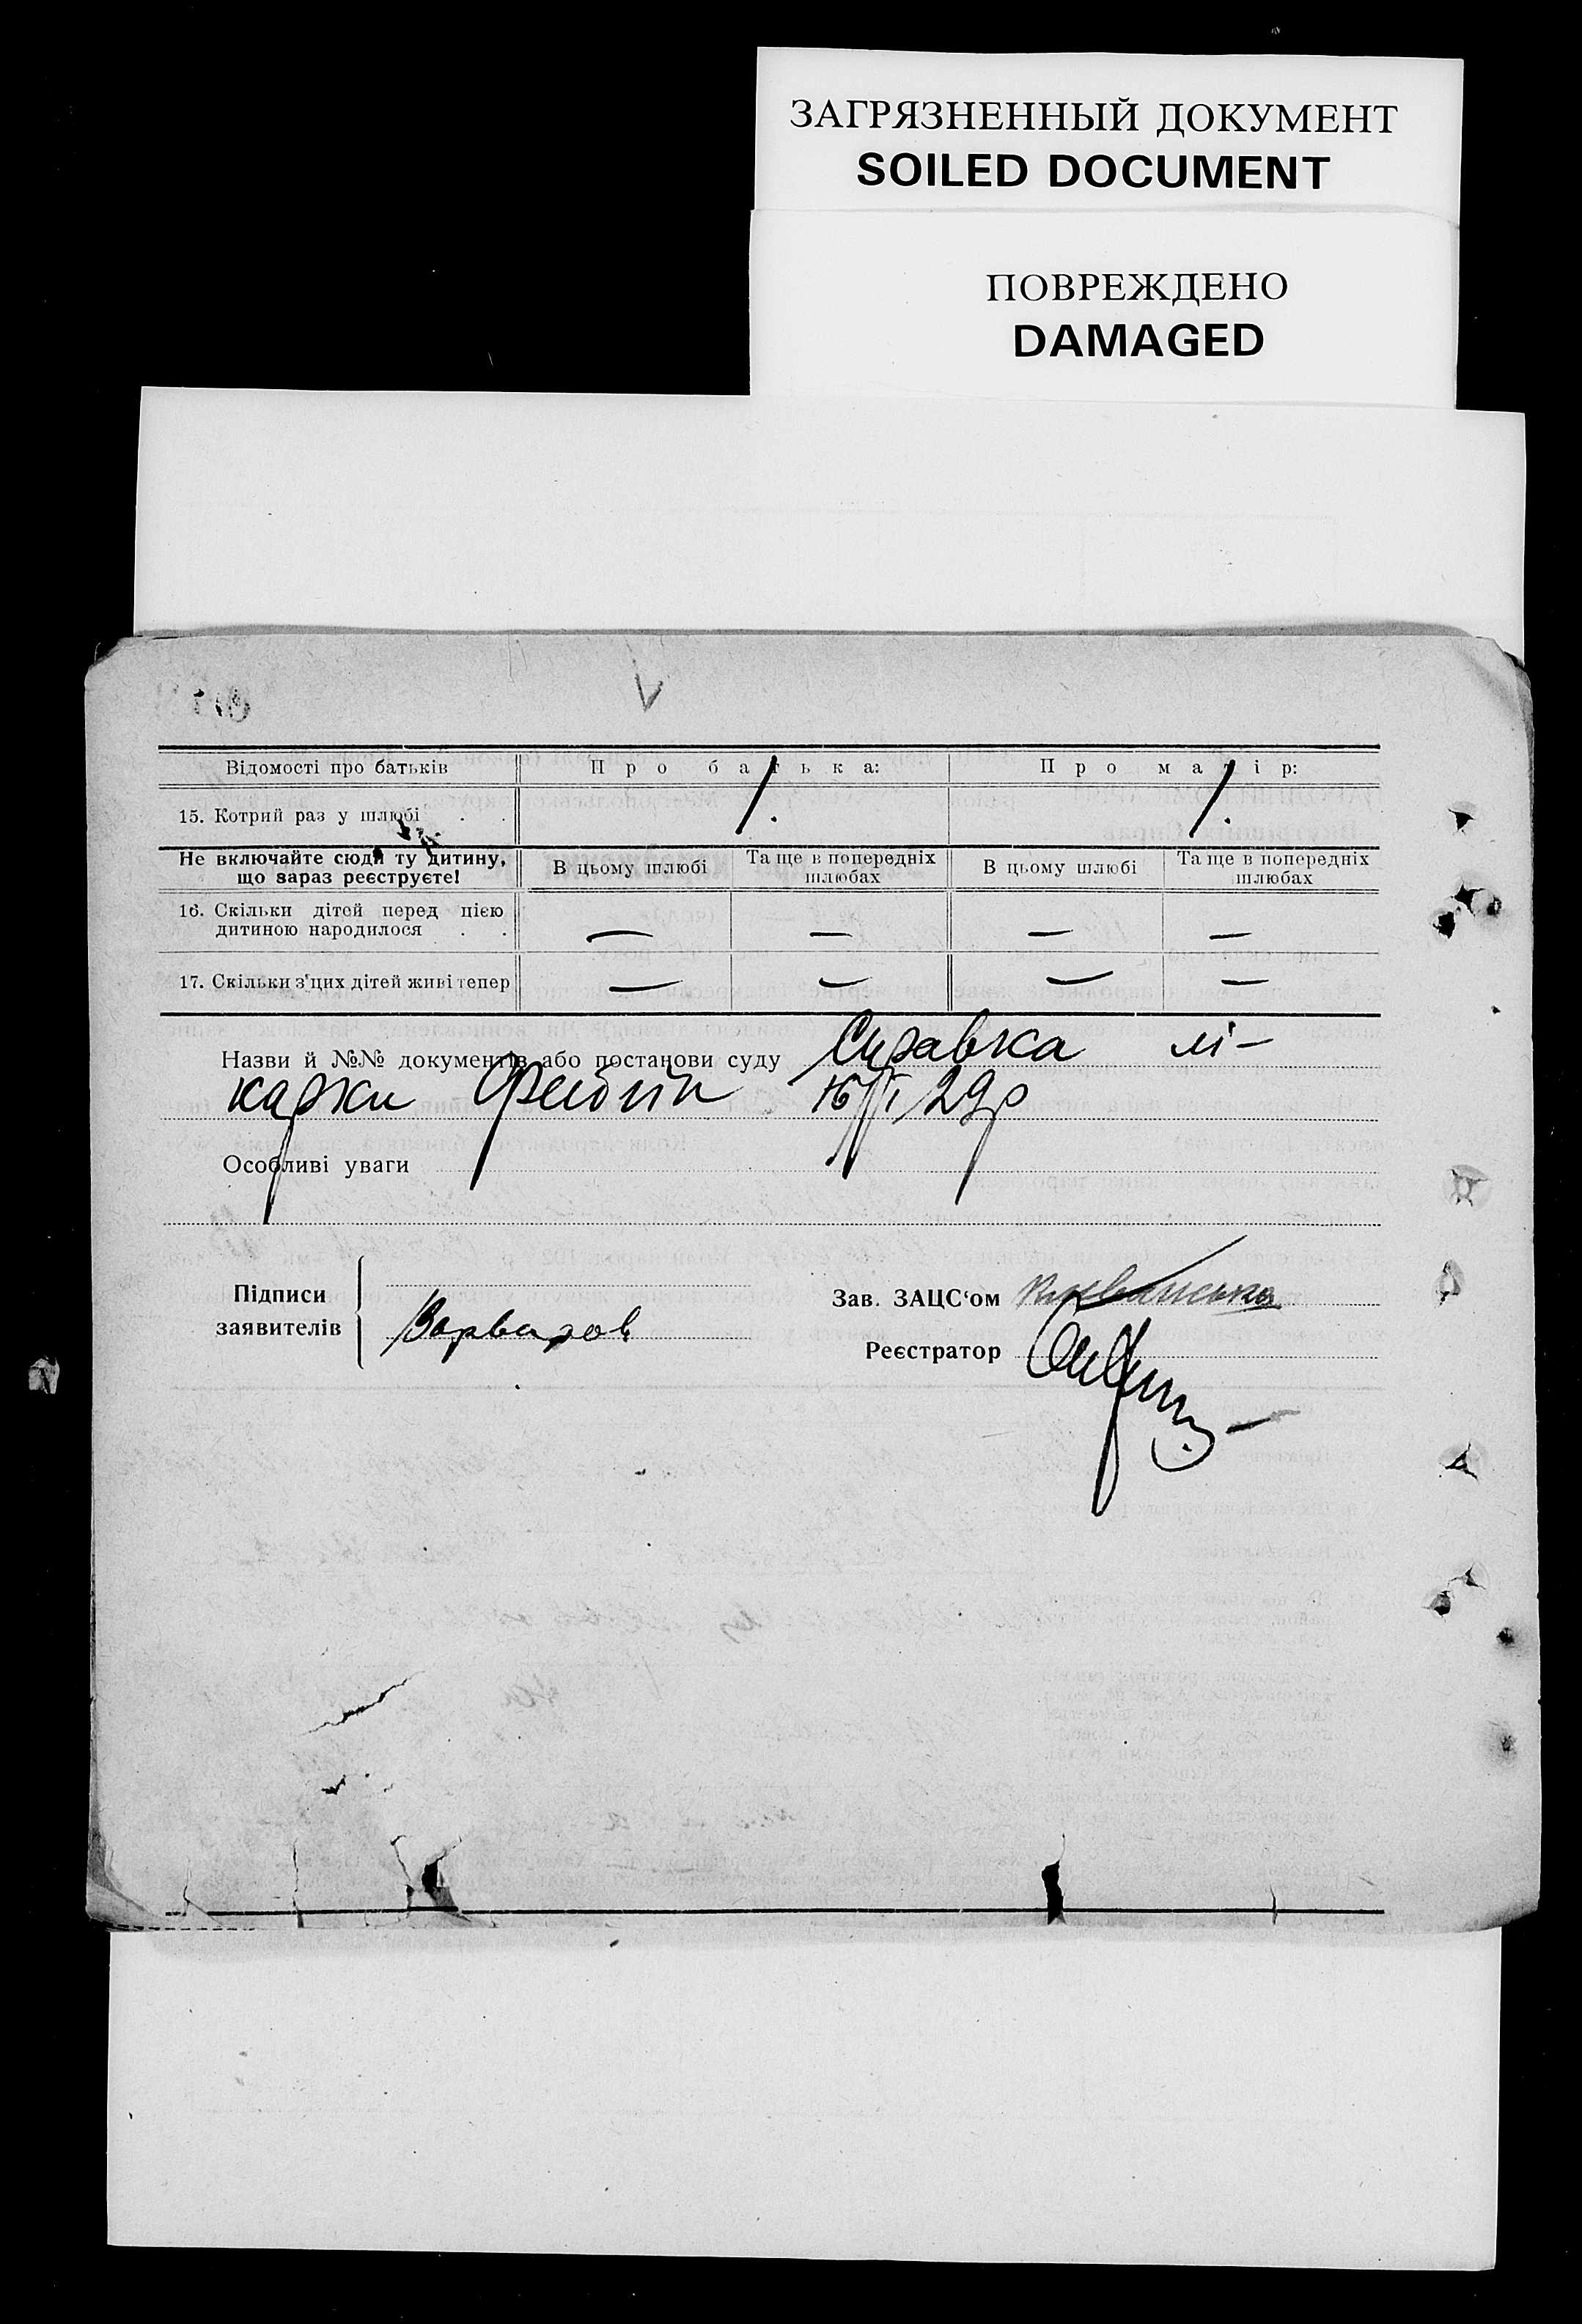 ЗАГРЯЗНЕННЫЙ ДОКУМЕНТ
SOILED DOCUMENT
ПОВРЕЖДЕНО
DAMAGED
V
Відомості про батьків Про батька: Про матір:
15. Котрий раз у шлюбі . . 1. 1.
Не включайте сюди ту дитину, що зараз реєструєте! В цьому шлюбі Та ще в попередніх шлюбах В цьому шлюбі Та ще в попередніх шлюбах
16. Скільки дітей перед цією
дитиною народилося . . — — — —
17. Скільки з'цих дітей живі тепер — — — —
Назви й №№ документів або постанови суду Справка лі-
карки 16/VI 29р
Особливі уваги
Підписи
заявителів
Зав. ЗАЦС'ом
Реєстратор